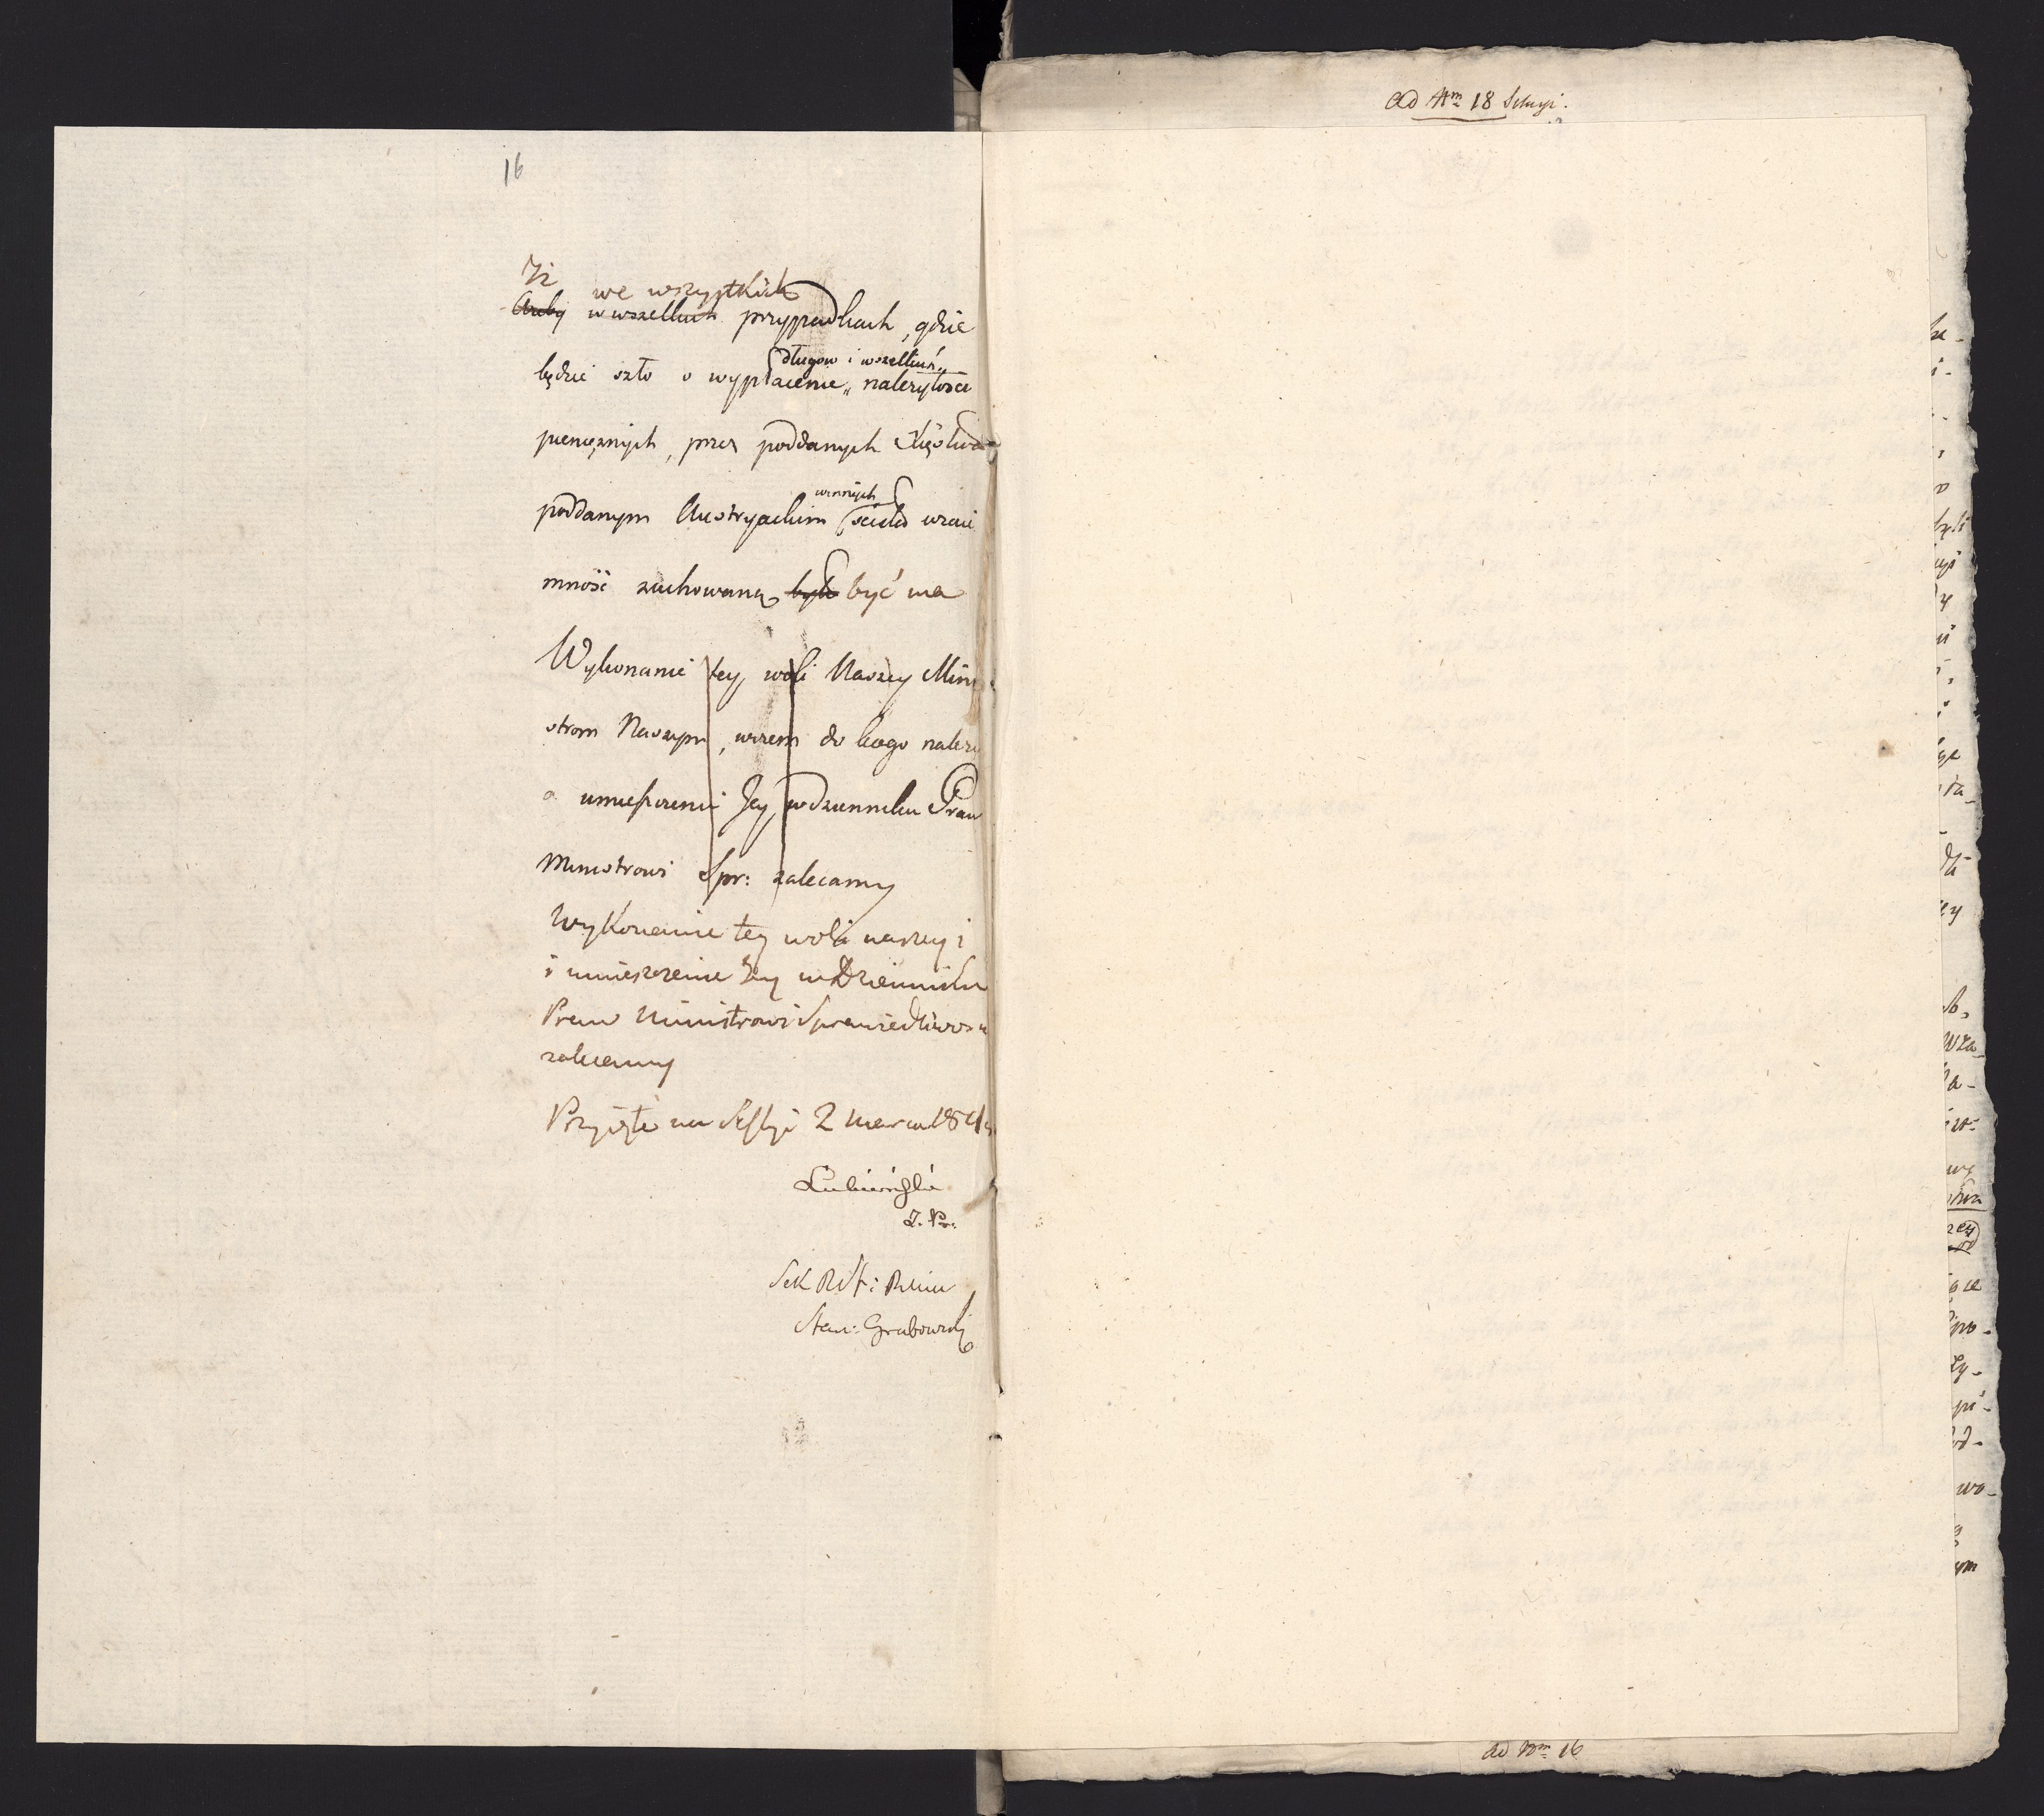 16
Iż we wszystkich
Ażeby w wszelkich przypadkach, gdzie
długow i wszelkich
będzie szło o wypłacenie „ należytości
pieniężnych, przez poddanych Xięstwa
winnych
poddanym Austryackim ścisła wzaie
mność zachowaną była być ma
Wykonanie tey woli Naszey Mini
strom Naszym, wczem do kogo należy
a umieszczenie Jey w dzienniku Praw
Ministrowi Spr: zalecamy
Wykonanie tey woli naszey i
i umieszczenie Jey w Dzienniku
Praw Ministrowi Sprawiedliwości
zalecamy
Przyięte na Sessyi 2 marca
Łubieński
Sek
Stan: Grabowski
Ad Nm 18 Sessyi.
ad Nm 16